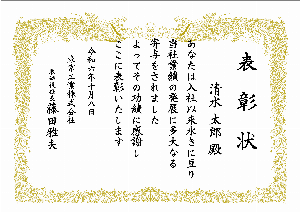 表彰状
清水 太郎 殿
あなたは入社以来永きに亘り
当社業績の発展に多大なる
寄与をされました
よってその功績に感謝し
ここに表彰いたします
令和六年十月八日
工業株式会社
藤田雅夫